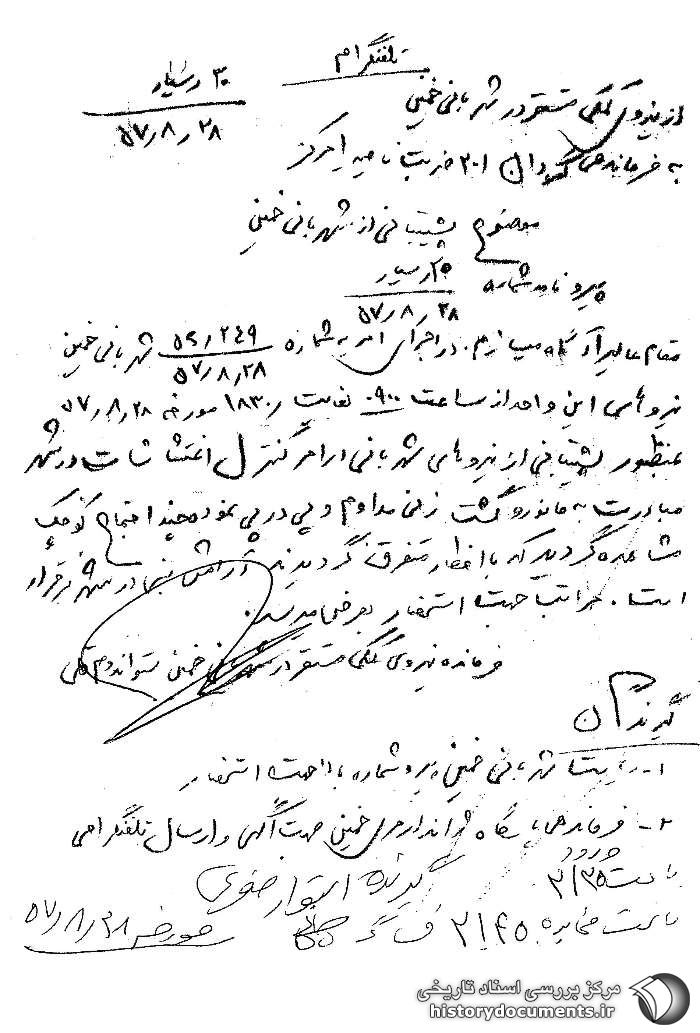 تلفنگرام
۳۰ رسیار
۵۷/۸/۲۸
از نیروی کمکی مستقر در شهربانی خمینی
به فرماندهی گردان ۲۰۱ ضربت ناحیه مرکز
موضوع پشتیبانی از شهربانی خمینی
پیرو نامه شماره ۲۵ رسیار
۵۷/۸/۲۸
مقام عالی را آگاه میسازم. در اجرای امریه شماره ۵۲/۲۴۹ شهربانی خمینی
۵۷/۸/۲۸
نیروهای این واحد از ساعت ۹۰۰ لغایت ۱۸۳۰ مورخه ۵۷/۸/۲۸
بمنظور پشتیبانی از نیروهای شهربانی در امر کنترل اغتشاشات در شهر
مبادرت به مانور و گشت زنی مداوم و پی در پی نموده چند اجتماع کوچک
مشاهده گردید که با اخطار متفرق گردیدند آرامش در شهر برقرار
است. مراتب جهت استحضار بعرض میرسد.
فرمانده نیروی کمکی مستقر در شهربانی خمینی ستواندوم
گیرندگان
۱- ریاست شهربانی خمینی پیرو شماره بالا جهت استحضار
۲- فرماندهی پاسگاه ژاندارمری خمینی جهت آگهی و ارسال تلفنگرامی
ورود
ساعت ۲/۳۵ گیرنده استوار صفوی
ساعت مخابره ۲/۴۵ مورخه ۵۷/۸/۲۸
مرکز بررسی اسناد تاریخی
historydocuments.ir